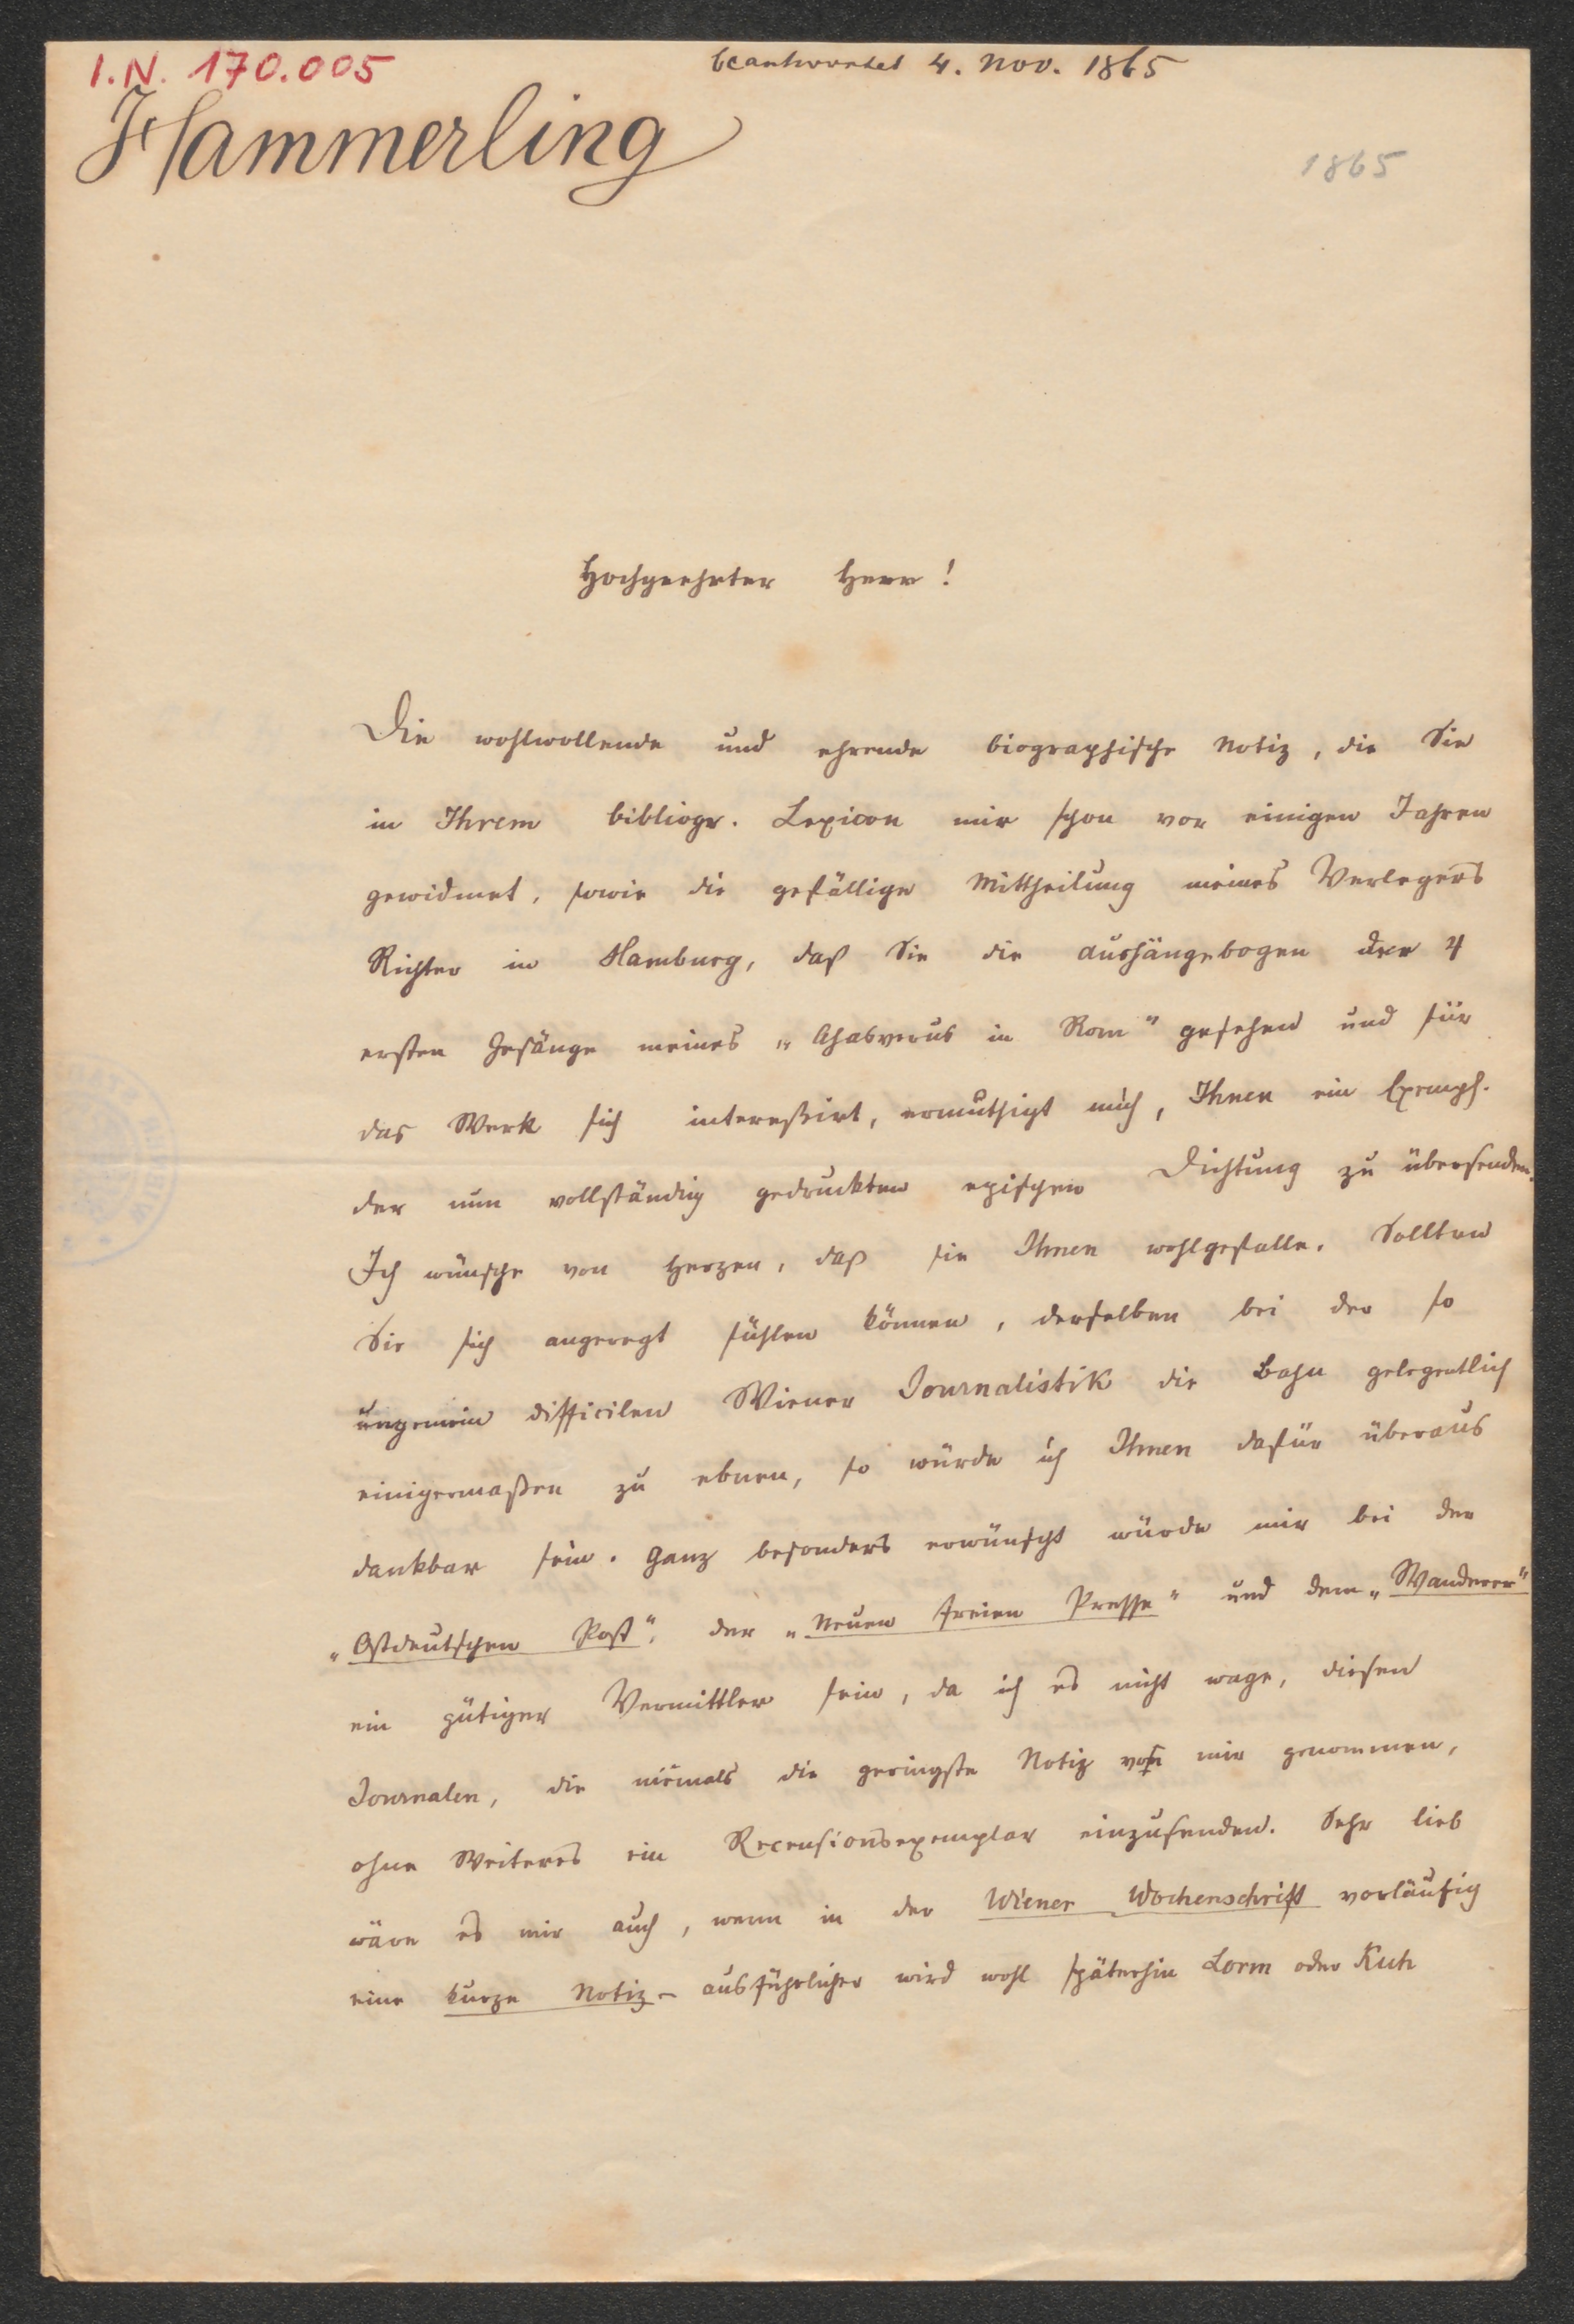 I.N. 170.005
beantwortet 4. Nov. 1865
Hammerling
1865
Hochgeehrter Herr!
Die wohlwollende und ehrende biographische Notiz, die Sie
in Ihrem bibliogr. Lexicon mir schon vor einigen Jahren
gewidmet, sowie die gefällige Mittheilung meines Verlegers
Richter in Hamburg, daß Sie die Aushängebogen der 4
ersten Gesänge meines „Ahasverus in Rom" gesehen und für
das Werk sich interessirt, ermuthigt mich, Ihnen ein Exempl.
der nun vollständig gedruckten epischen Dichtung zu übersenden.
Ich wünsche von Herzen, daß sie Ihnen wohlgefalle. Sollten
Sie sich angeregt fühlen können, derselben bei der so
ungemein difficilen Wiener Journalistik die Bahn gelegentlich
einigermaßen zu ebnen, so würde ich Ihnen dafür überaus
dankbar sein. Ganz besonders erwünscht würde mir bei der
„Ostdeutschen Post", der „Neuen freien Presse" und dem „Wanderer"
ein gütiger Vermittler sein, da ich es nicht wage, diesen
Journalen, die niemals die geringste Notiz von mir genommen,
ohne Weiteres ein Recensionsexemplar einzusenden. Sehr lieb
wäre es mir auch, wenn in der Wiener Wochenschrift vorläufig
eine kurze Notiz – ausführlicher wird wohl späterhin Lorm oder Kuh